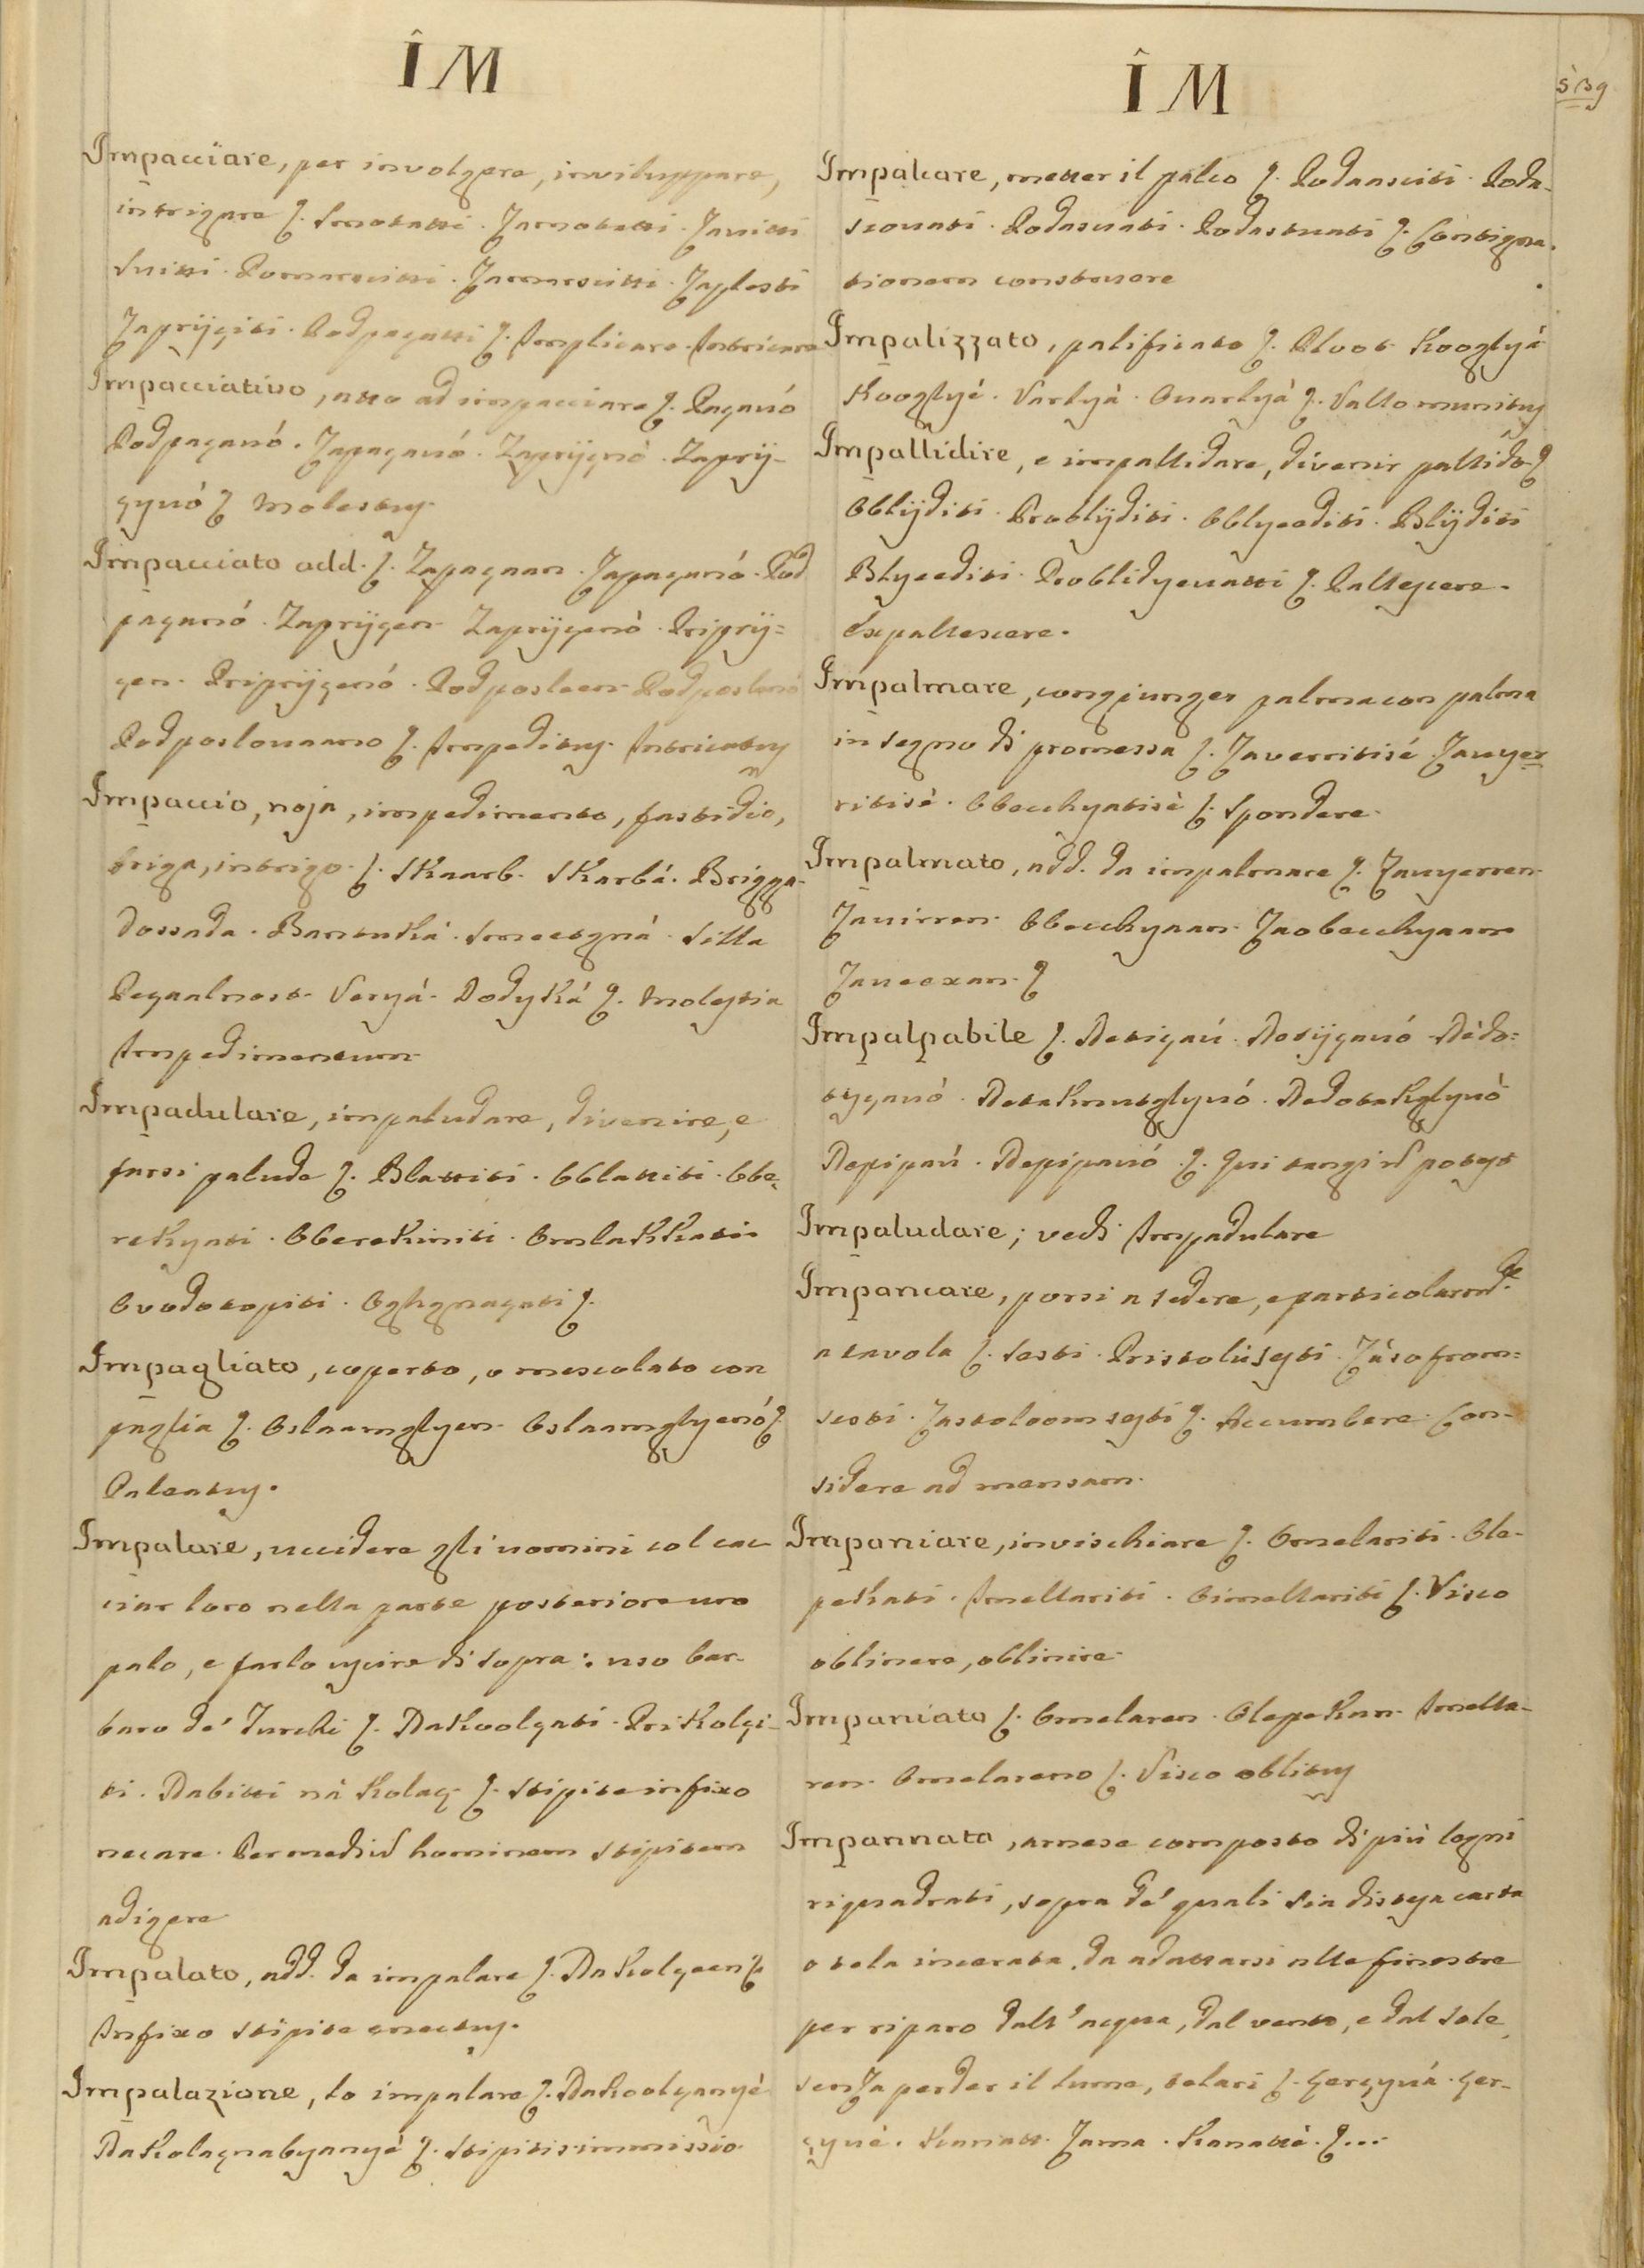 ÎM
Impacciare, per involgere, inviluppare,
intrigare ſ. Smotatti. Zamotatti. Zavitti
Svitti. Pomarscitti. Zamarscitti. Zaplesti
Zaprijçiti. Podpaçatti ſ. Implicare. Intricare
Impacciativo, atto ad impacciare ſ. Paçavó
Podpaçavó. Zapaçavó. Zaprijçnò. Zaprij-
çyvó ſ. Molestus.
Impacciato add. ſ. Zapaçaan. Zapaçanó. Pod
paçanó. Zaprijçen. Zaprijçenò. Priprij=
çen. Priprijçenó. Podposleen. Podposlenó
Podposlovaano ſ. Impeditus. Intricatus
Impaccio, noja, impedimento, fastidio,
briga, intrigo. ſ. Skaarb. Skarbá. Brigga.
Dossada. Bantuká. Smeetgná. Silla
Peçaalnost. Veryá. Dodyká ſ. Molestia
Impedimentum.
Impadulare, impaludare, divenire, e
farsi palude ſ. Blattiti. Oblattiti. Obe-
rekyati. Oberekiniti. Omlakkati.
Ovodotopiti. Oghgnaçati ſ.
Impagliato, coperto, o mescolato con
paglia ſ. Oslaamglyen. Oslaamglyenó ſ.
Paleatus.
Impalare, uccidere gli uomini col cac
ciar loro nella parte posteriore uno
palo, e farlo uscire di sopra: uso bar-
baro de' Turchi ſ. Nakoolçati. Prikolçi-
ti. Nabitti nà kolaç ſ. Stipite infixo
necare. Per mediũ hominem stipitem
adigere
Impalato, add. da impalare ſ. Nakolçeen ſ.
Infixo stipite enectus.
Impalazione, lo impalare ſ. Nakoolçanyè
Nakolaçnabyanyé ſ. Stipitis immissio.
ÎM
539
Impalcare, metter il palco ſ. Podaasciti. Poda-
sciovati. Podasuati. Podastuati ſ. Contigna-
tionem construere
Impalizzato, palificato ſ. Ploot kooglyá
Kooglyé. Varlyà. Ovarlyà ſ. Vallo munitus
Impallidire, e impallidare, divenir pallido ſ
Oblijditi. Problijditi. Oblyeediti. Blijditi
Blyeediti. Problidyevatti ſ. Pallescere.
Expallescere.
Impalmare, congiunger palma con palma
in segno di promessa ſ. Zaverritisé. Zavyer
ritisè. Obecchyatisè ſ. Spondere.
Impalmato, add. da impalmare ſ. Zavyerren
Zavirren. Obecchyaan. Zaobecchyaano
Zaveexan. ſ
Impalpabile ſ. Netiçaú. Netijçavó. Nèdo=
tyçavó. Netaknutglyvó. Nedotakglyvò
Nepipaú. Nepipavó. ſ. Qui tangi nõ potest
Impaludare; vedi Impadulare
Impancare, porsi a sedere, e particolarm.te
a tavola ſ. Sesti. Pristolúsesti. Zàsofrom=
sesti. Zastoloom sesti ſ. Accumbere. Con-
sidere ad mensam.
Impaniare, invischiare ſ. Omelariti. Ole-
pekati. Imellariti. Oimellariti ſ. Visco
oblinere, oblinire.
Impaniato ſ. Omelaren. Olepekan. Imella-
ren. Omelareno ſ. Visco oblitus
Impannata, arnese composto di più legni
riquadrati, sopra de' quali sia distesa carta
o tela incerata, da adattarsi alle finestre
per riparo dall'acqua, dal vento, e dal sole,
senza perder il lume, telari ſ. Çerçyvá. Çer-
çyvè. Kanatt. Jama. Kanattè. ſ...